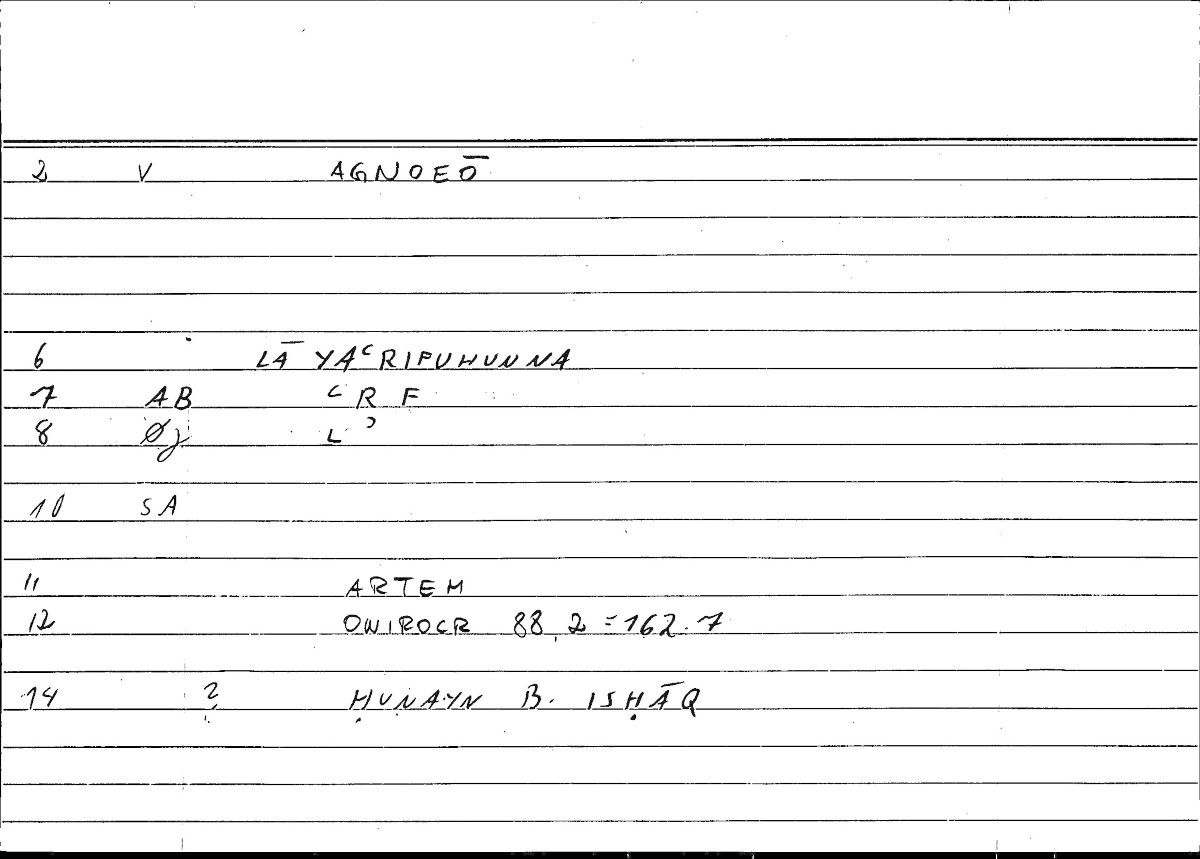 2 V AGNOEŌ
6 LĀ YAʿRIFUHUNNA
7 AB ʿRF
8 Øj Lʾ
10 SA
11 ARTEM
12 ONIROCR 88,2 = 162.7
14 ? ḤUNAYN B. ISḤĀQ